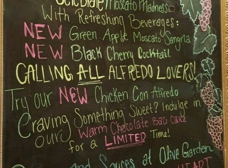 Moscato Madness
With Refreshing Beverages:
NEW Green Apple Moscato Sangria
NEW Black Cherry Cocktail
CALLING ALL ALFREDO LOVERS!
Try our NEW Chicken Con Alfredo
Craving Something Sweet? Indulge in
our Warm Chocolate
For a LIMITED Time!
and Soups at Olive Garden
HEART